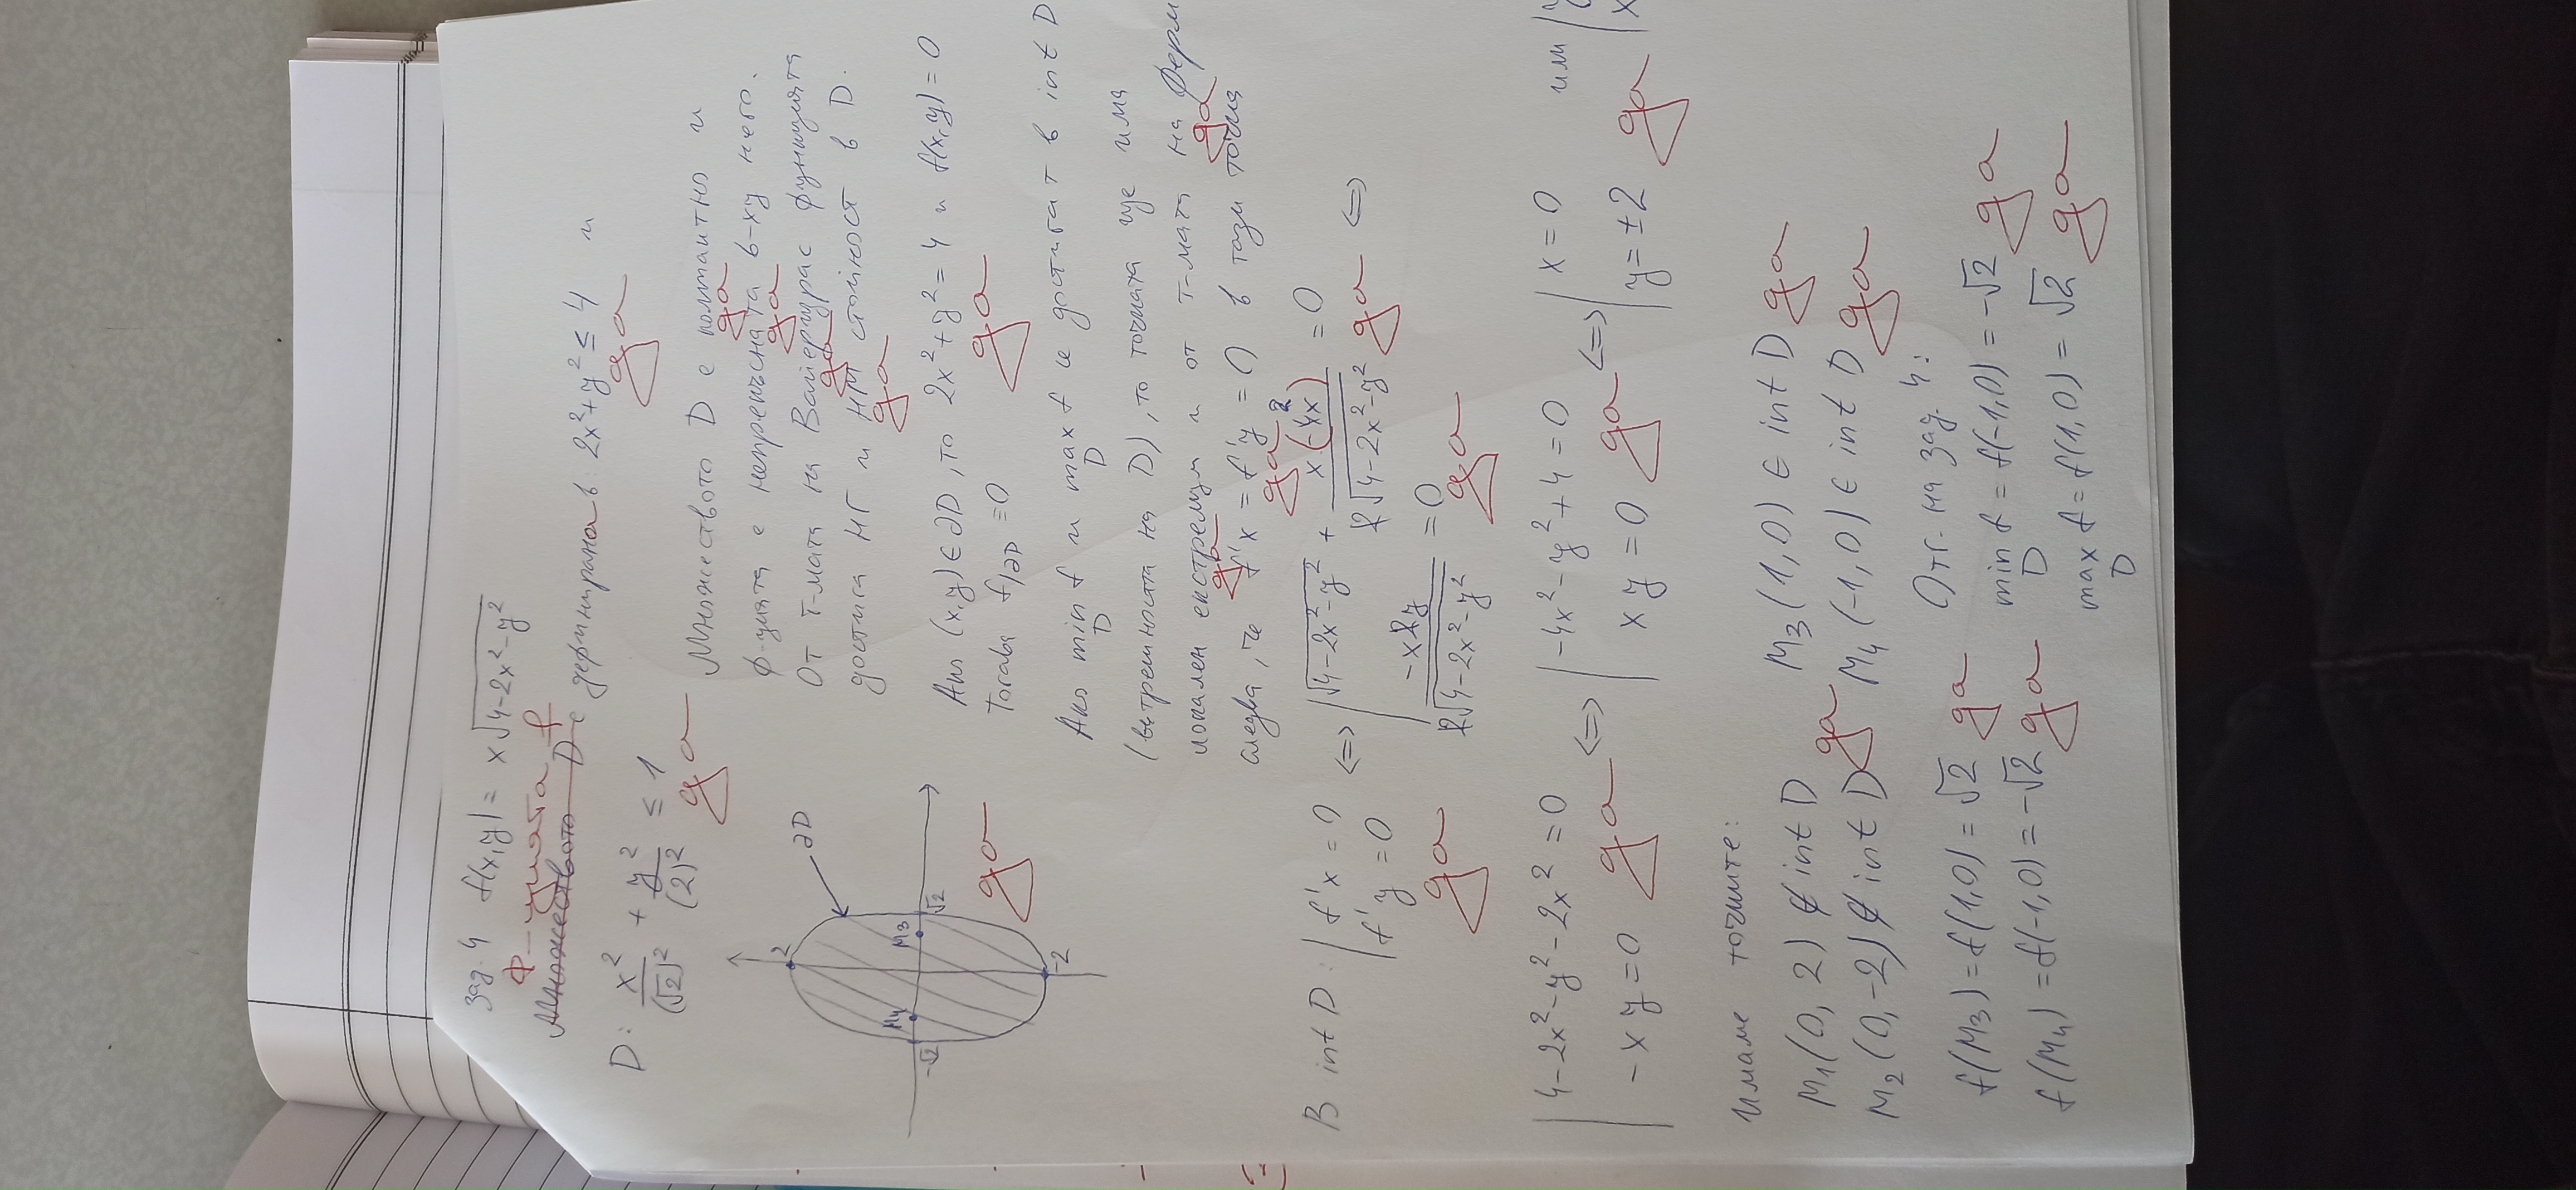 зад. 4 f(x,y) = x√(4-2x²-y²)
Ф-цията f
Множеството D е дефинирана в 2x²+y² ≤ 4 и
да
D: x²/(√2)² + y²/(2)² ≤ 1
да
Множеството D е компактно и
да
ф-цията е непрекъсната в-ху него.
да
От т-мата на Вайерщрас функцията
да
достига НГ и НМ стойност в D.
да
2
∂D
M4 M3
-√2 √2
-2
да
Ако (x,y) ∈ ∂D, то 2x²+y² = 4 и f(x,y) = 0
да
Тогава f/∂D ≡ 0
Ако min f и max f се достигат в int D
D D
(вътрешността на D), то точката ще има
локален екстремум и от т-мата на Ферма
да да
следва, че f'x = f'y = 0 в тази точка
да
В int D: | f'x = 0 <=> | √(4-2x²-y²) + x(-4x)/2√(4-2x²-y²) = 0 да <=>
2
f'y = 0 -x2y/2√(4-2x²-y²) = 0
да да
| 4-2x²-y²-2x² = 0 <=> | -4x²-y²+4 = 0 <=> | x = 0 или | y
-xy = 0 да xy = 0 да y = ±2 да x
Имаме точките:
M1(0, 2) ∉ int D M3(1,0) ∈ int D да
да
M2(0,-2) ∉ int D M4(-1,0) ∈ int D да
Отг. на зад. 4:
f(M3) = f(1,0) = √2 да
min f = f(-1,0) = -√2 да
D
f(M4) = f(-1,0) = -√2 да
max f = f(1,0) = √2 да
D